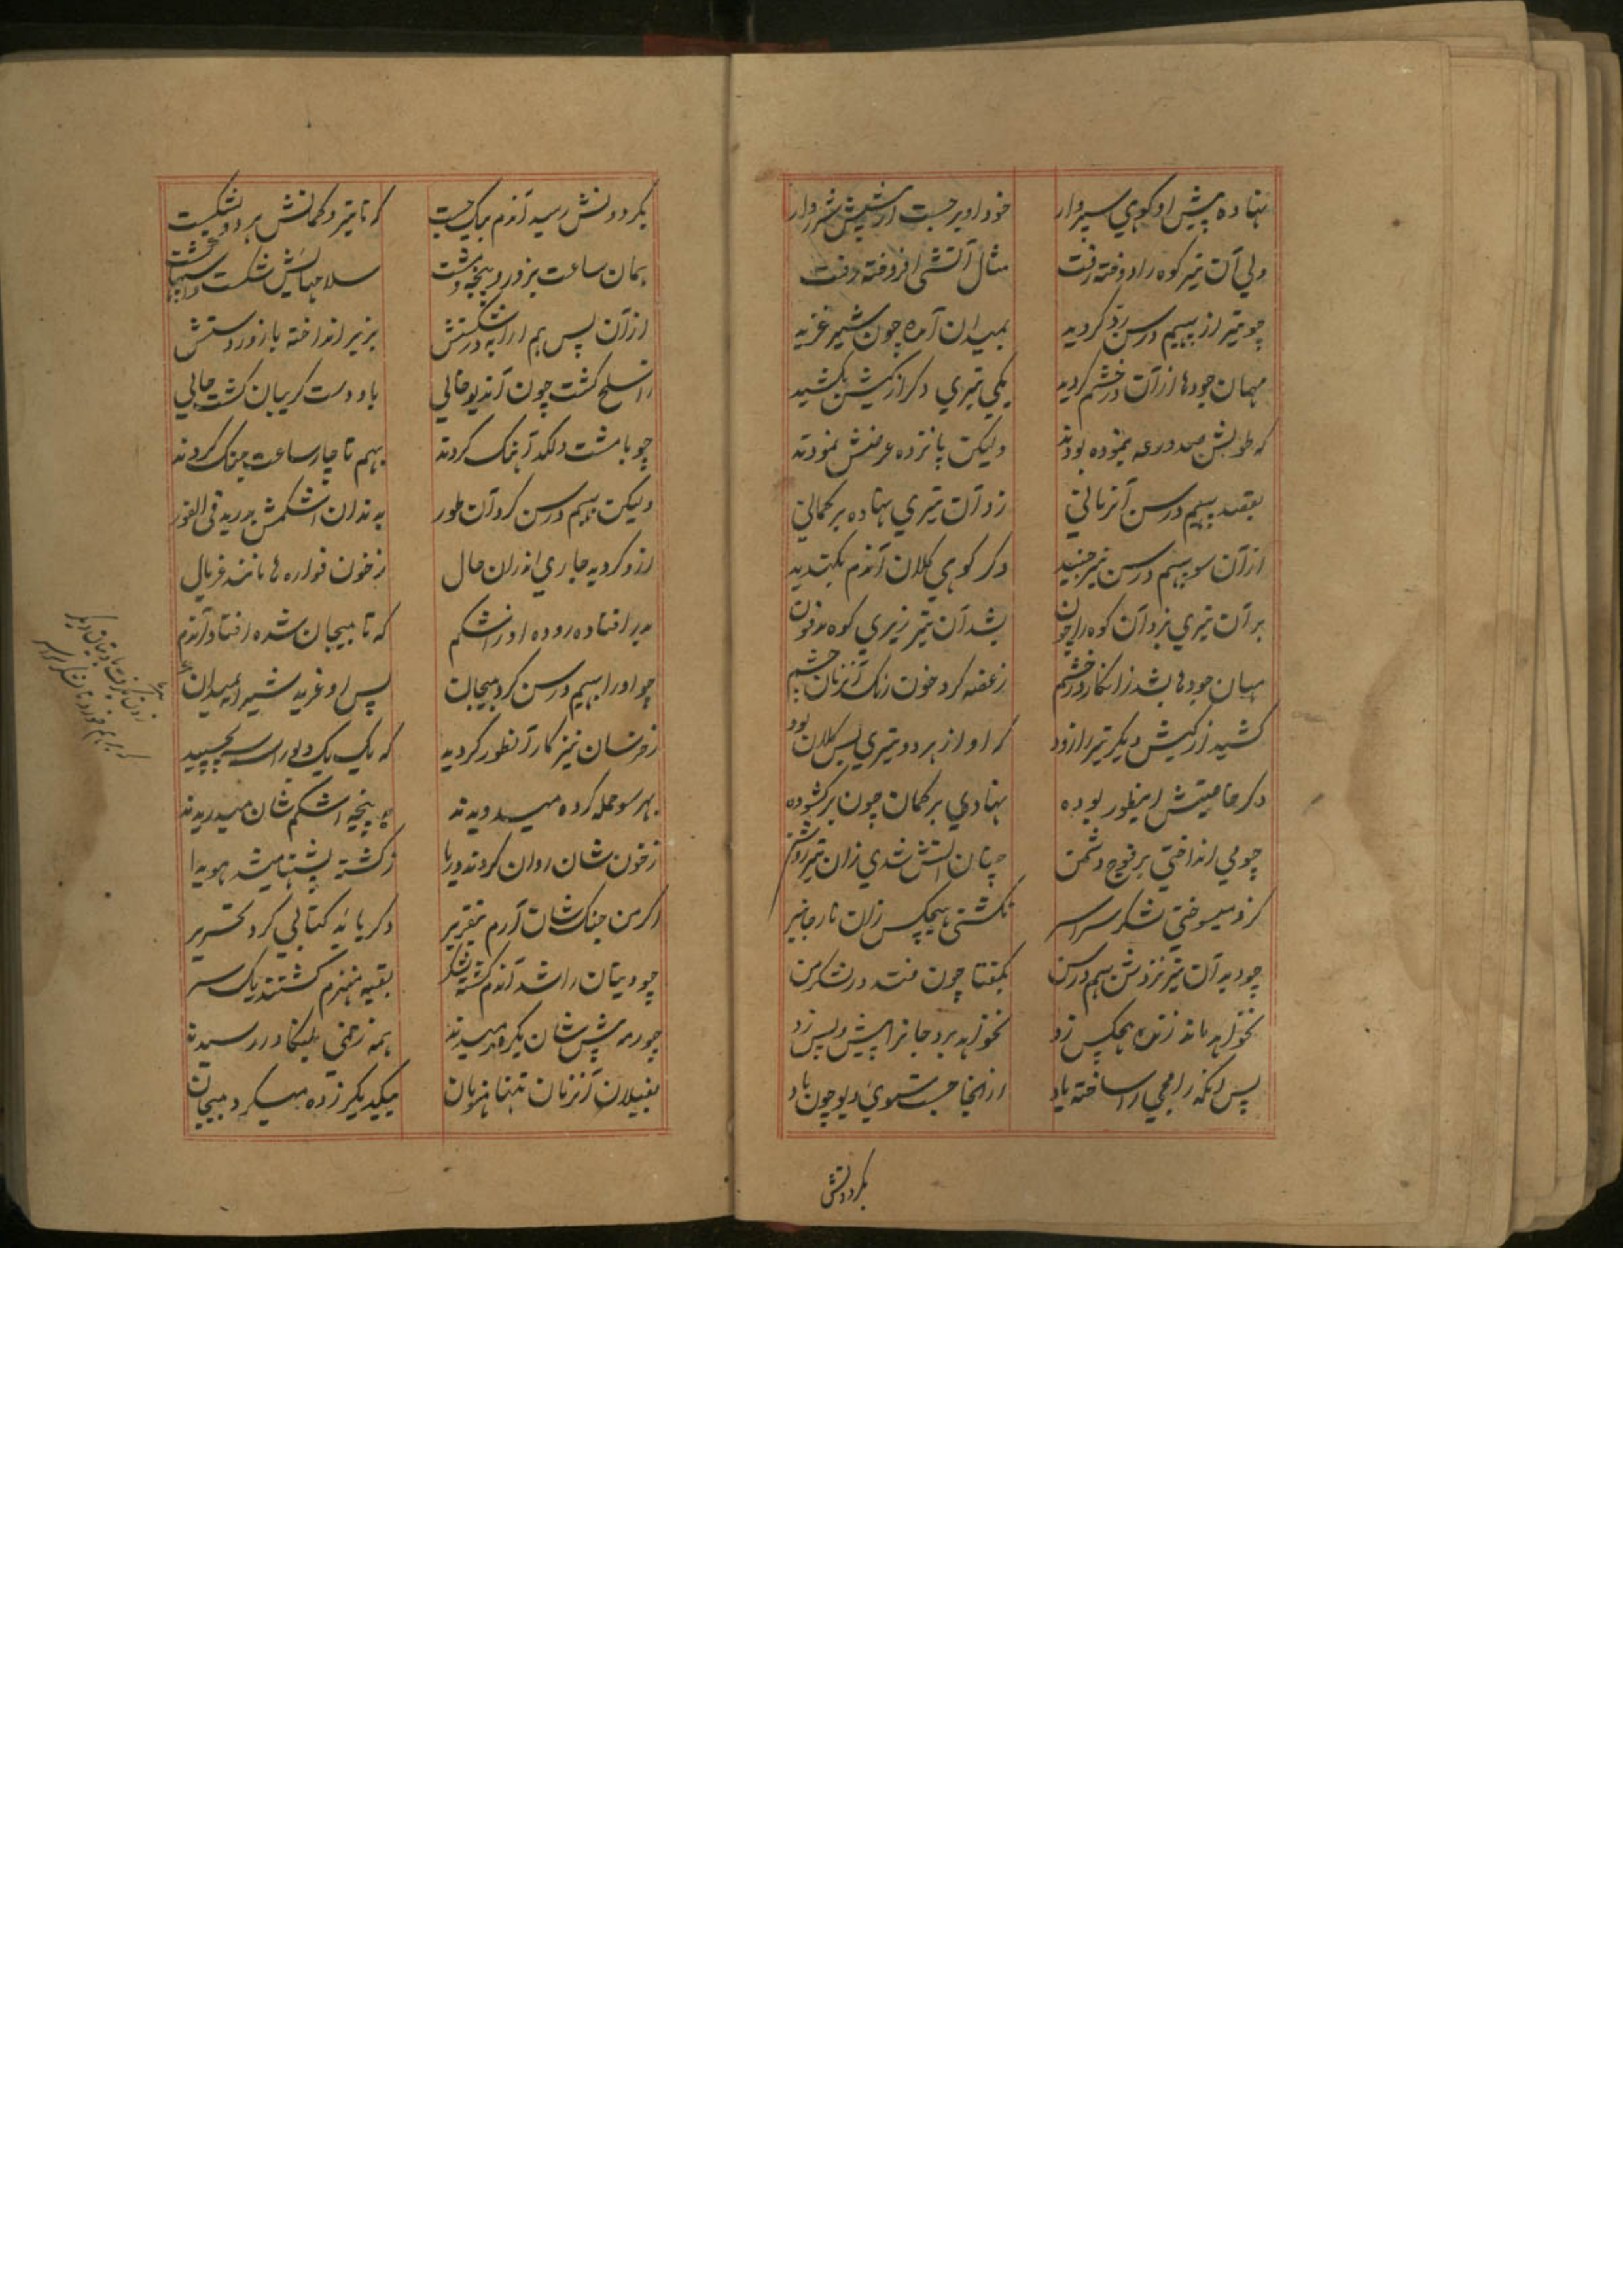 نهاده پیش او کوهی سپروار خود او برجست از پیشش شرروار
ولی آن تیر کوه را دوخته رفت مثال آتشی افروخته رفت
چو تیر از بهیم درسن رد کردید بمیدان آمده چون شیر غرید
مهان جودها از آن در خشم کردید یکی تیری دکر از کیش بکشید
که طولش صد درعه نموده بودند ولیکن پانزده عرضش نمودند
بقصد بهیم درسن آنزمانی زد آن تیری نهاده بر کمانی
از آن سو بهیم درسن نیز جنبید دکر کوهی کلان آندم بکندید
بر آن تیری بزد آن کوه را چون بشد آن تیر زیری کوه مدفون
مهان جودها بشد زان کار در خشم ز غصه کرد خون رنک آنزمان چشم
کشید از کیش دیکر تیر را زود که او از هر دو تیری بس کلان بود
دکر خاصیتش اینطور بوده نهادی بر کمان چون برکشوده
چو می انداختی بر فوج دشمن چنان آتش شدی زان تیر روشن
کزو میسوختی لشکر سراسر نکشتی هیچکس زان نار جانبر
چو دید آن تیر نزدش بهیم درسن بکفتا چون فتد در لشکر من
نخواهد ماند زنده هیچکس زد نخواهد برد جانرا پیش و پس زد
پس آنکه رامچی را ساخته یاد از آنجا جست سوی دیو چون باد
بکردونش
بکردونش رسید آندم بیک جست که تا تیر و کمانش هر دو بشکست
همان ساعت بزور و پنجه و مشت سلاحهایش شکست و اسپها کشت
از آن پس هم ارابه در شکستش بزیر انداخته با زور دستش
ز اسلح کشت چون آندیو خالی باو دست کریبان کشت حالی
چو با مشت و لکد آهنک کردند بهم تا چار ساعت جنک کردند
ولیکن بهیم درسن کرد آن طور بدندان اشکمش درید فی الفور
ازو کردید جاری اندران حال ز خون فواره ها مانند غربال
بدر افتاده روده او ز اشکم که تا بیجان شده افتاد آندم
چو او را بهیم درسن کرد بیجان پس او غرید شیرآسا بمیدان
ز خرسان نیز کار آنطور کردید که یک یک دیو را سه بچسپید
بهر سو حمله کرده میدویدند به پنجه اشکم شان میدریدند
ز خون شان روان کردند دریا ز کشته پشتها میشد هویدا
اکر من جنک شان آرم بتقریر دکر باید کتابی کرد تحریر
چو دیتان را شد آندم کشته لشکر بقیه منهزم کشتند یک سر
چو رمه پیش شان یکره رمیدند همه زخمی بلنکا در رسیدند
بفیلان آنزمان تنها هزبران بیکدیکر زده میکرد بیجان